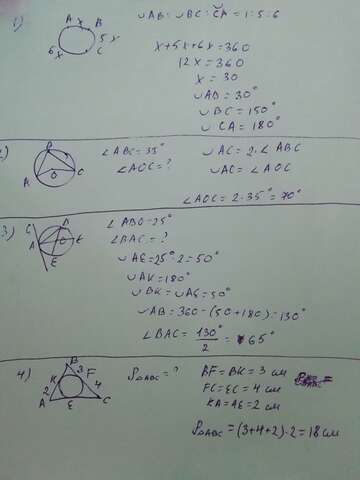 1) A x B 5x C 6x
∪AB : ∪BC : ∪CA = 1:5:6
x+5x+6x=360
12x=360
x = 30
∪AB = 30°
∪BC = 150°
∪CA = 180°
2) B A O C
∠ABC=35° ∪AC = 2·∠ABC
∠AOC=? ∪AC = ∠AOC
∠AOC = 2·35°=70°
3) C B A O K E
∠ABO=25°
∠BAC=?
∪AE=25°·2=50°
∪AK=180°
∪BK=∪AE=50°
∪AB=360-(50+180)=130°
∠BAC= 130°/2 = 65°
4) B 3 F K 4 2 A E C
P△ABC=? BF=BK=3 см
FC=EC=4 см
KA=AE=2 см
P△ABC=(3+4+2)·2=18 см